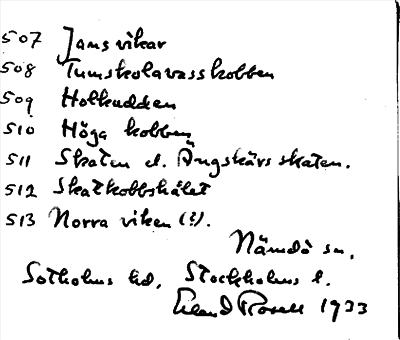 507 Jansvikar
508 Tumskolavasskobben
509 Holkudden
510 Höga kobben
511 Skaten el. Ängskärs skaten.
512 Skatkobbshålet
513 Norra viken (?).
Nämdö sn,
Sotholms hd, Stockholms l.
Erland Rosell 1933